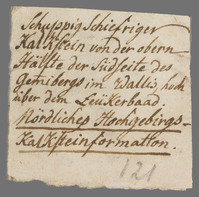 Schuppig Schiefriger
Kalkstein von der obern
Hälfte der Südseite des
Gemibergs im Wallis hoch
über dem Leukerbaad.
Nördliches Hochgebirgs-
Kalksteinformation.
121